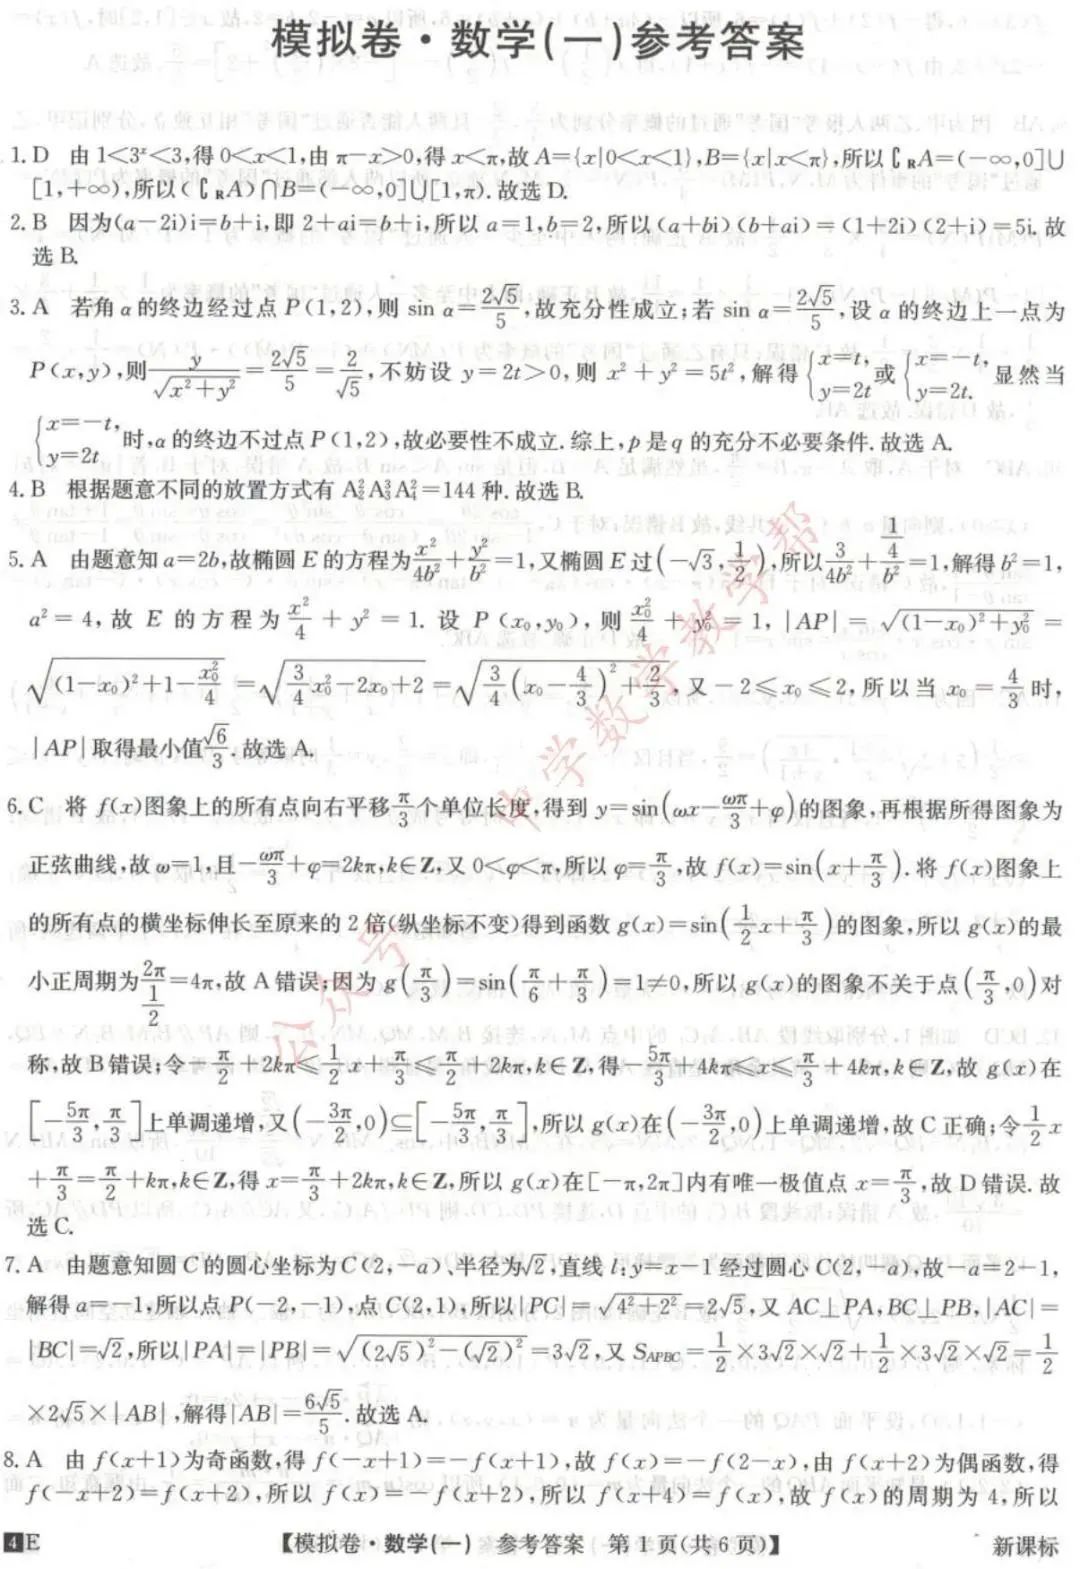 模拟卷·数学(一)参考答案
1. D 由 1<3ˣ<3,得 0<x<1,由 π-x>0,得 x<π,故 A={x|0<x<1},B={x|x<π},所以∁RA=(-∞,0]∪
[1,+∞),所以(∁RA)∩B=(-∞,0]∪[1,π).故选 D.
2. B 因为(a-2i)i=b+i,即 2+ai=b+i,所以 a=1,b=2,所以(a+bi)(b+ai)=(1+2i)(2+i)=5i.故
选 B.
3. A 若角 α 的终边经过点 P(1,2),则 sin α=2√5/5,故充分性成立;若 sin α=2√5/5,设 α 的终边上一点为
P(x,y),则 y/√(x²+y²)=2√5/5=2/√5,不妨设 y=2t>0,则 x²+y²=5t²,解得{x=t, y=2t 或{x=-t, y=2t. 显然当
{x=-t, y=2t 时,α 的终边不过点 P(1,2),故必要性不成立.综上,p 是 q 的充分不必要条件.故选 A.
4. B 根据题意不同的放置方式有 A²₂A³₃A²₄=144 种.故选 B.
5. A 由题意知 a=2b,故椭圆 E 的方程为 x²/4b²+y²/b²=1,又椭圆 E 过(-√3,1/2),所以 3/4b²+(1/4)/b²=1,解得 b²=1,
a²=4,故 E 的方程为 x²/4+y²=1.设 P(x₀,y₀),则 x₀²/4+y₀²=1,|AP|=√((1-x₀)²+y₀²)=
√((1-x₀)²+1-x₀²/4)=√(3/4x₀²-2x₀+2)=√(3/4(x₀-4/3)²+2/3),又-2≤x₀≤2,所以当 x₀=4/3时,
|AP|取得最小值√6/3.故选 A.
6. C 将 f(x)图象上的所有点向右平移π/3个单位长度,得到 y=sin(ωx-ωπ/3+φ)的图象,再根据所得图象为
正弦曲线,故 ω=1,且-ωπ/3+φ=2kπ,k∈Z,又 0<φ<π,所以 φ=π/3,故 f(x)=sin(x+π/3).将 f(x)图象上
的所有点的横坐标伸长至原来的 2 倍(纵坐标不变)得到函数 g(x)=sin(1/2x+π/3)的图象,所以 g(x)的最
小正周期为2π/(1/2)=4π,故 A 错误;因为 g(π/3)=sin(π/6+π/3)=1≠0,所以 g(x)的图象不关于点(π/3,0)对
称,故 B 错误;令-π/2+2kπ≤1/2x+π/3≤π/2+2kπ,k∈Z,得-5π/3+4kπ≤x≤π/3+4kπ,k∈Z,故 g(x)在
[-5π/3,π/3]上单调递增,又(-3π/2,0)⊆[-5π/3,π/3],所以 g(x)在(-3π/2,0)上单调递增,故 C 正确;令1/2x
+π/3=π/2+kπ,k∈Z,得 x=π/3+2kπ,k∈Z,所以 g(x)在[-π,2π]内有唯一极值点 x=π/3,故 D 错误.故
选 C.
7. A 由题意知圆 C 的圆心坐标为 C(2,-a)、半径为√2,直线 l:y=x-1 经过圆心 C(2,-a),故-a=2-1,
解得 a=-1,所以点 P(-2,-1),点 C(2,1),所以|PC|=√(4²+2²)=2√5,又 AC⊥PA,BC⊥PB,|AC|=
|BC|=√2,所以|PA|=|PB|=√((2√5)²-(√2)²)=3√2,又 S_APBC=1/2×3√2×√2+1/2×3√2×√2=1/2
×2√5×|AB|,解得|AB|=6√5/5.故选 A.
8. A 由 f(x+1)为奇函数,得 f(-x+1)=-f(x+1),故 f(x)=-f(2-x),由 f(x+2)为偶函数,得
f(-x+2)=f(x+2),所以 f(x)=-f(x+2),所以 f(x+4)=f(x),故 f(x)的周期为 4,所以
4E 【模拟卷·数学(一) 参考答案 第 1 页(共 6 页)】 新课标
公众号 中学数学帮